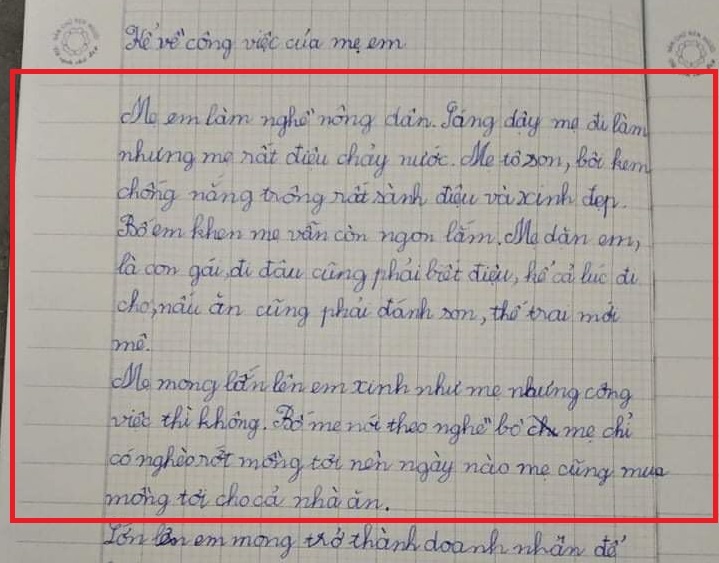 Kể về công việc của mẹ em
Mẹ em làm nghề nông dân. Sáng dậy mẹ đi làm
nhưng mẹ rất điệu chảy nước. Mẹ tô son, bôi kem
chống nắng trông rất sành điệu và xinh đẹp.
Bố em khen mẹ vẫn còn ngon lắm. Mẹ dặn em,
là con gái, đi đâu cũng phải biết điệu, kể cả lúc đi
chợ, nấu ăn cũng phải đánh son, thế trai mới
mê.
Mẹ mong lớn lên em xinh như mẹ nhưng công
việc thì không. Bố mẹ nói theo nghề bố mẹ chỉ
có nghèo rớt mồng tơi nên ngày nào mẹ cũng mua
mồng tơi cho cả nhà ăn.
Lớn lên em mong trở thành doanh nhân để